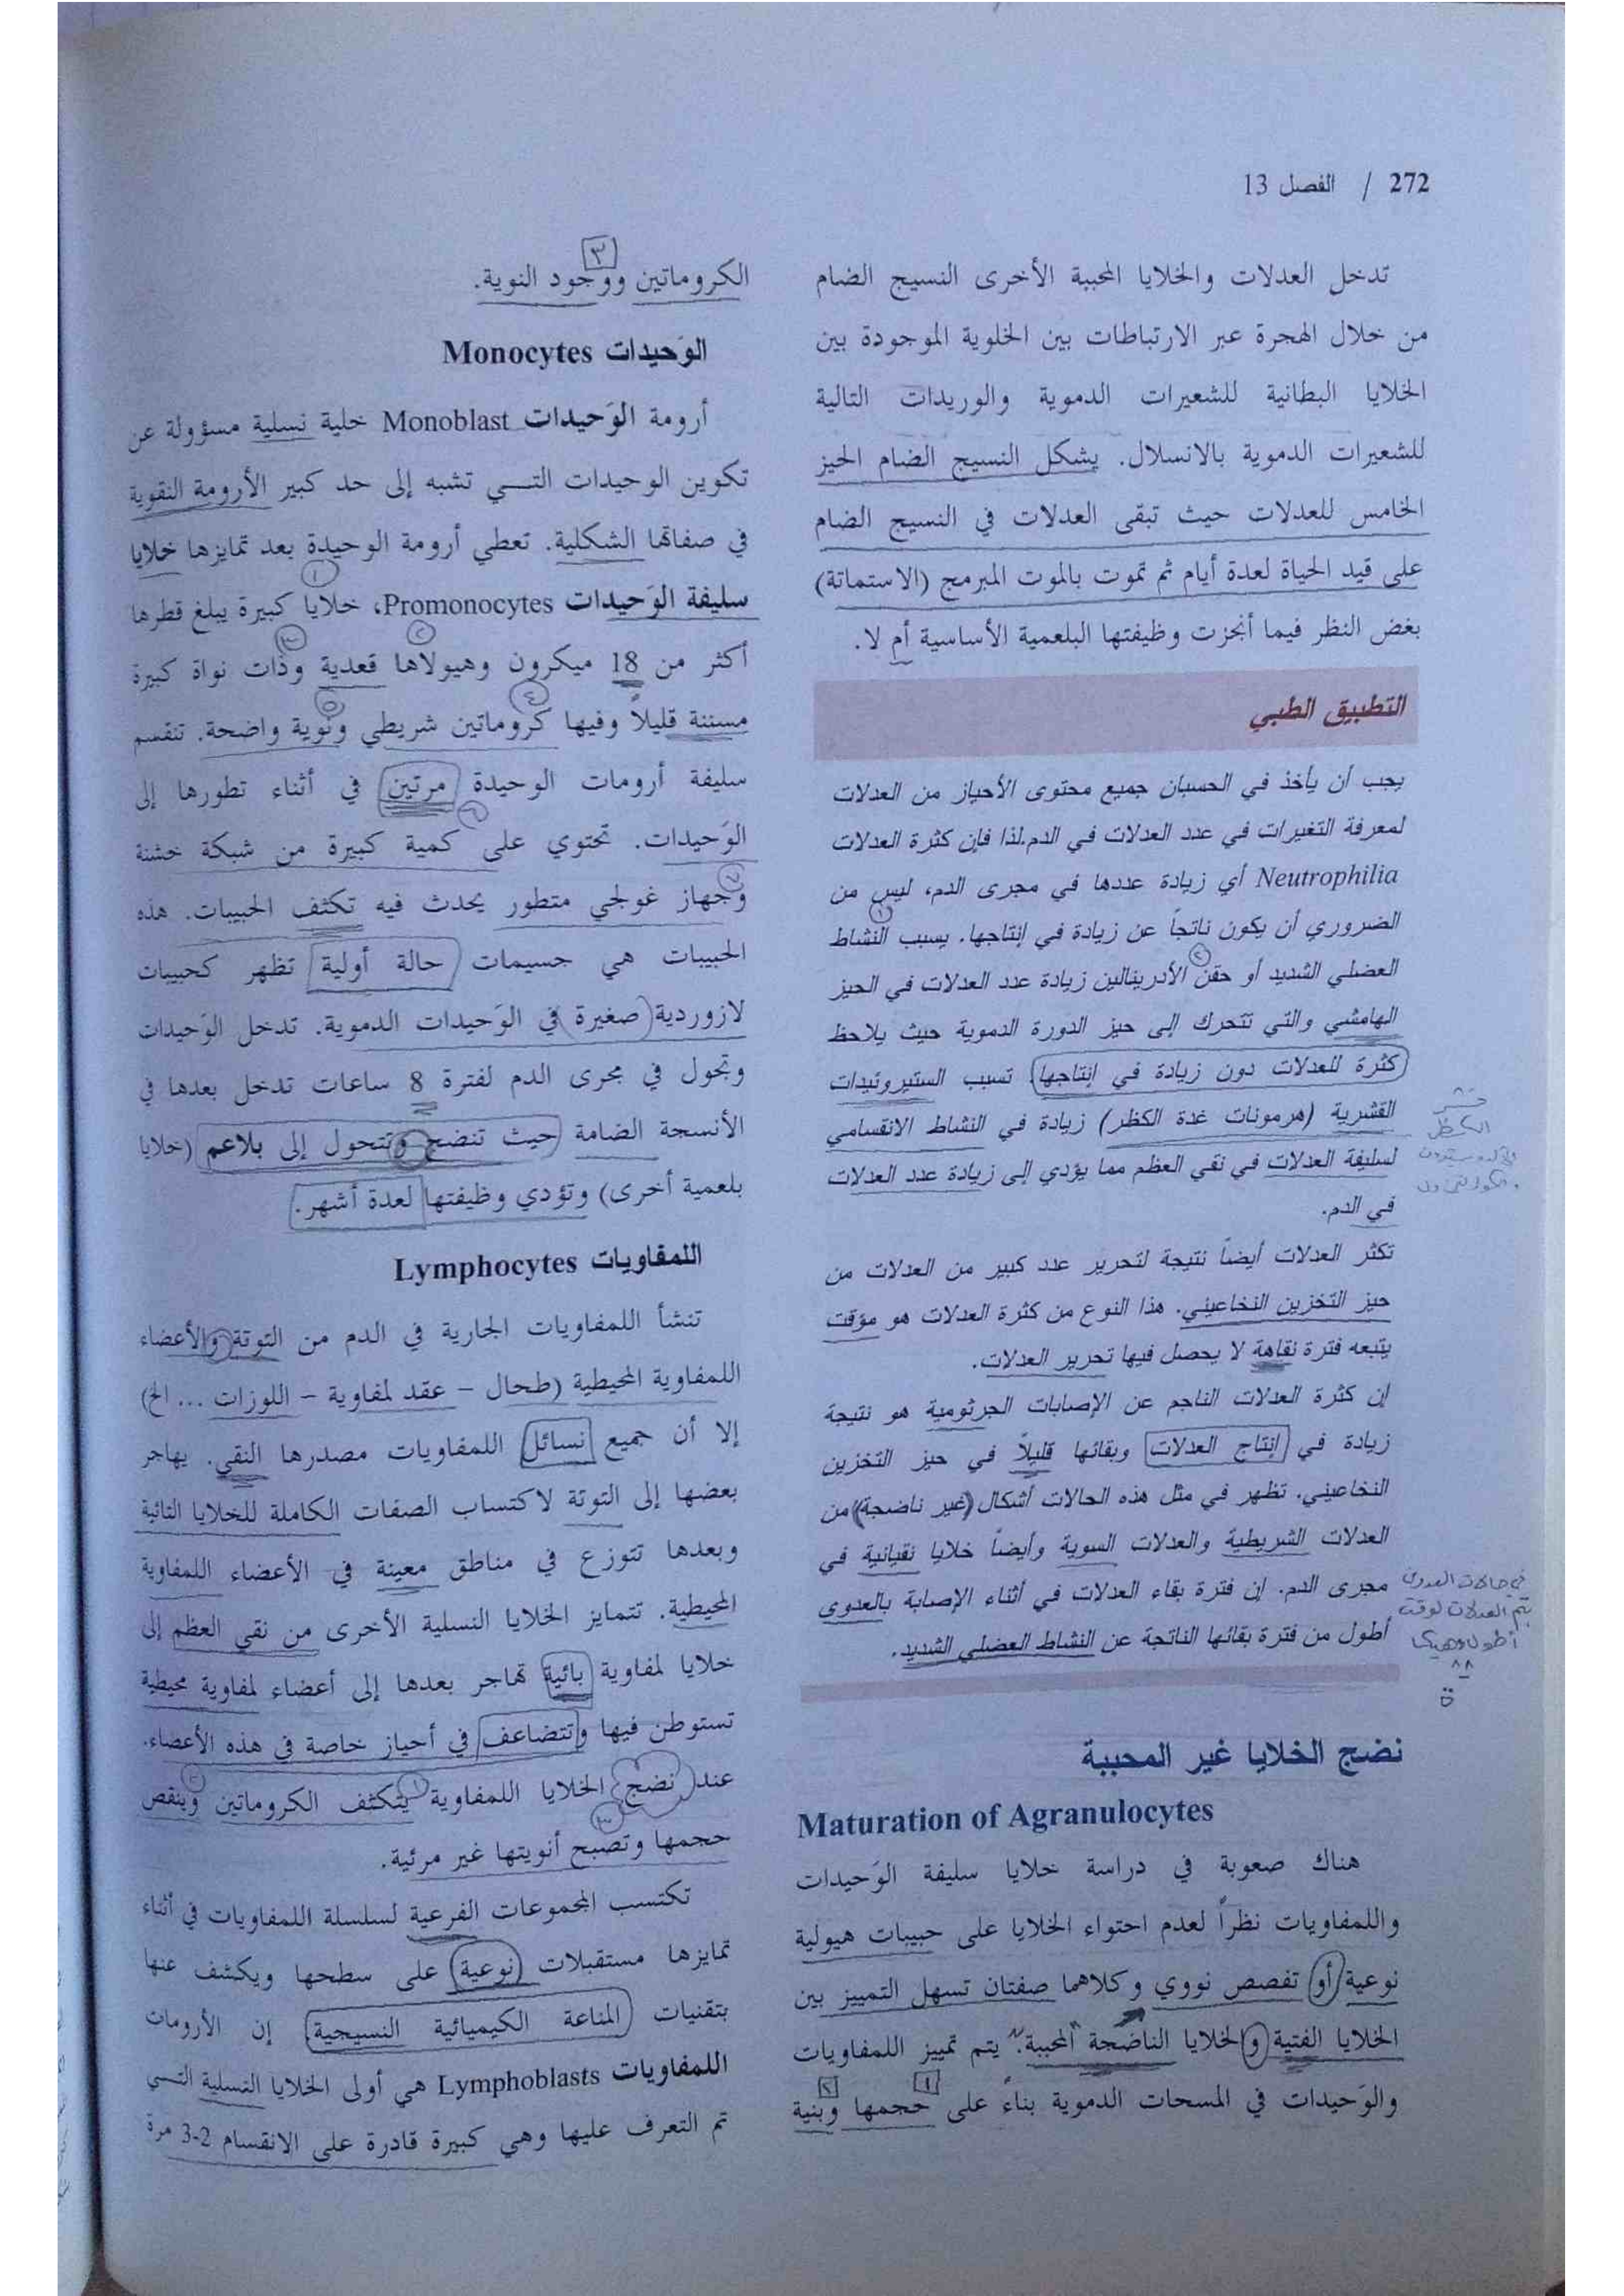 272 / الفصل 13
تدخل العدلات والخلايا المحببة الأخرى النسيج الضام
من خلال الهجرة عبر الارتباطات بين الخلوية الموجودة بين
الخلايا البطانية للشعيرات الدموية والوريدات التالية
للشعيرات الدموية بالانسلال. يشكل النسيج الضام الحيز
الخامس للعدلات حيث تبقى العدلات في النسيج الضام
على قيد الحياة لعدة أيام ثم تموت بالموت المبرمج (الاستماتة)
بغض النظر فيما أنجزت وظيفتها البلعمية الأساسية أم لا.
التطبيق الطبي
يجب أن يأخذ في الحسبان جميع محتوى الأحياز من العدلات
لمعرفة التغيرات في عدد العدلات في الدم.لذا فإن كثرة العدلات
Neutrophilia أي زيادة عددها في مجرى الدم، ليس من
الضروري أن يكون ناتجاً عن زيادة في إنتاجها. يسبب النشاط
العضلي الشديد أو حقن الأدرينالين زيادة عدد العدلات في الحيز
الهامشي والتي تتحرك إلى حيز الدورة الدموية حيث يلاحظ
كثرة للعدلات دون زيادة في إنتاجها. تسبب الستيروئيدات
القشرية (هرمونات غدة الكظر) زيادة في النشاط الانقسامي
لسليفة العدلات في نقي العظم مما يؤدي إلى زيادة عدد العدلات
في الدم.
قشر
الكظر
تكثر العدلات أيضاً نتيجة لتحرير عدد كبير من العدلات من
حيز التخزين النخاعيني. هذا النوع من كثرة العدلات هو مؤقت
يتبعه فترة نقاهة لا يحصل فيها تحرير العدلات.
إن كثرة العدلات الناجم عن الإصابات الجرثومية هو نتيجة
زيادة في إنتاج العدلات وبقائها قليلاً في حيز التخزين
النخاعيني. تظهر في مثل هذه الحالات أشكال (غير ناضجة) من
العدلات الشريطية والعدلات السوية وأيضاً خلايا نقيانية في
مجرى الدم. إن فترة بقاء العدلات في أثناء الإصابة بالعدوى
أطول من فترة بقائها الناتجة عن النشاط العضلي الشديد.
في حالات العدوى
العدلات لوقت
نضج الخلايا غير المحببة
Maturation of Agranulocytes
هناك صعوبة في دراسة خلايا سليفة الوَحيدات
واللمفاويات نظراً لعدم احتواء الخلايا على حبيبات هيولية
نوعية أو تفصص نووي وكلاهما صفتان تسهل التمييز بين
الخلايا الفتية والخلايا الناضجة المحببة. يتم تمييز اللمفاويات
والوَحيدات في المسحات الدموية بناءً على حجمها وبنية
الكروماتين ووجود النوية.
الوَحيدات Monocytes
أرومة الوَحيدات Monoblast خلية نسلية مسؤولة عن
تكوين الوحيدات التـي تشبه إلى حد كبير الأرومة النقوية
في صفاتها الشكلية. تعطي أرومة الوحيدة بعد تمايزها خلايا
سليفة الوَحيدات Promonocytes، خلايا كبيرة يبلغ قطرها
أكثر من 18 ميكرون وهيولاها قعدية وذات نواة كبيرة
مسننة قليلاً وفيها كروماتين شريطي ونوية واضحة. تنقسم
سليفة أرومات الوحيدة مرتين في أثناء تطورها إلى
الوَحيدات. تحتوي على كمية كبيرة من شبكة خشنة
وجهاز غولجي متطور يحدث فيه تكثف الحبيبات. هذه
الحبيبات هي جسيمات حالة أولية تظهر كحبيبات
لازوردية (صغيرة) في الوَحيدات الدموية. تدخل الوَحيدات
وتجول في مجرى الدم لفترة 8 ساعات تدخل بعدها في
الأنسجة الضامة حيث تنضج وتتحول إلى بلاعم (خلايا
بلعمية أخرى) وتؤدي وظيفتها لعدة أشهر.
اللمفاويات Lymphocytes
تنشأ اللمفاويات الجارية في الدم من التوتة والأعضاء
اللمفاوية المحيطية (طحال – عقد لمفاوية – اللوزات ... الخ)
إلا أن جميع نسائل اللمفاويات مصدرها النقي. يهاجر
بعضها إلى التوتة لاكتساب الصفات الكاملة للخلايا التائية
وبعدها تتوزع في مناطق معينة في الأعضاء اللمفاوية
المحيطية. تتمايز الخلايا النسلية الأخرى من نقي العظم إلى
خلايا لمفاوية بائية تهاجر بعدها إلى أعضاء لمفاوية محيطية
تستوطن فيها وتتضاعف في أحياز خاصة في هذه الأعضاء.
عند نضج الخلايا اللمفاوية يتكثف الكروماتين وينقص
حجمها وتصبح أنويتها غير مرئية.
تكتسب المجموعات الفرعية لسلسلة اللمفاويات في أثناء
تمايزها مستقبلات (نوعية) على سطحها ويكشف عنها
بتقنيات المناعة الكيميائية النسيجية. إن الأرومات
اللمفاويات Lymphoblasts هي أولى الخلايا النسلية التـي
تم التعرف عليها وهي كبيرة قادرة على الانقسام 2-3 مرة